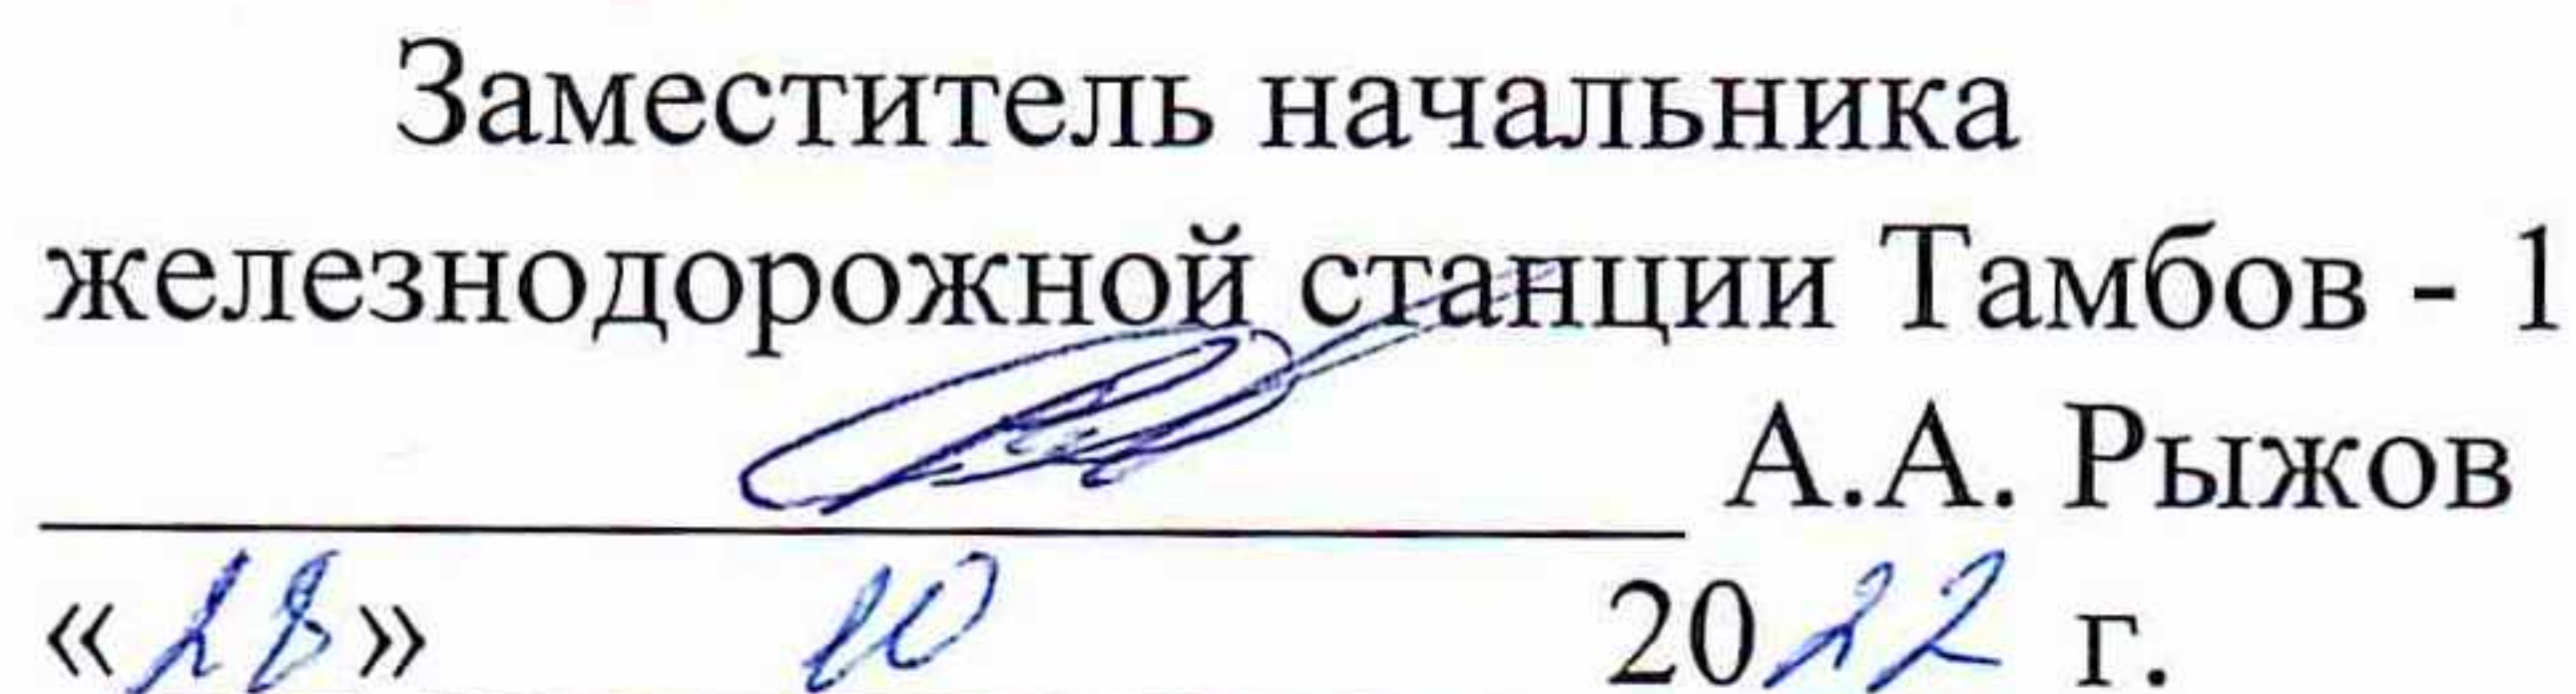 Заместитель начальника
железнодорожной станции Тамбов - 1
А.А. Рыжов
«28» 10 2022 г.